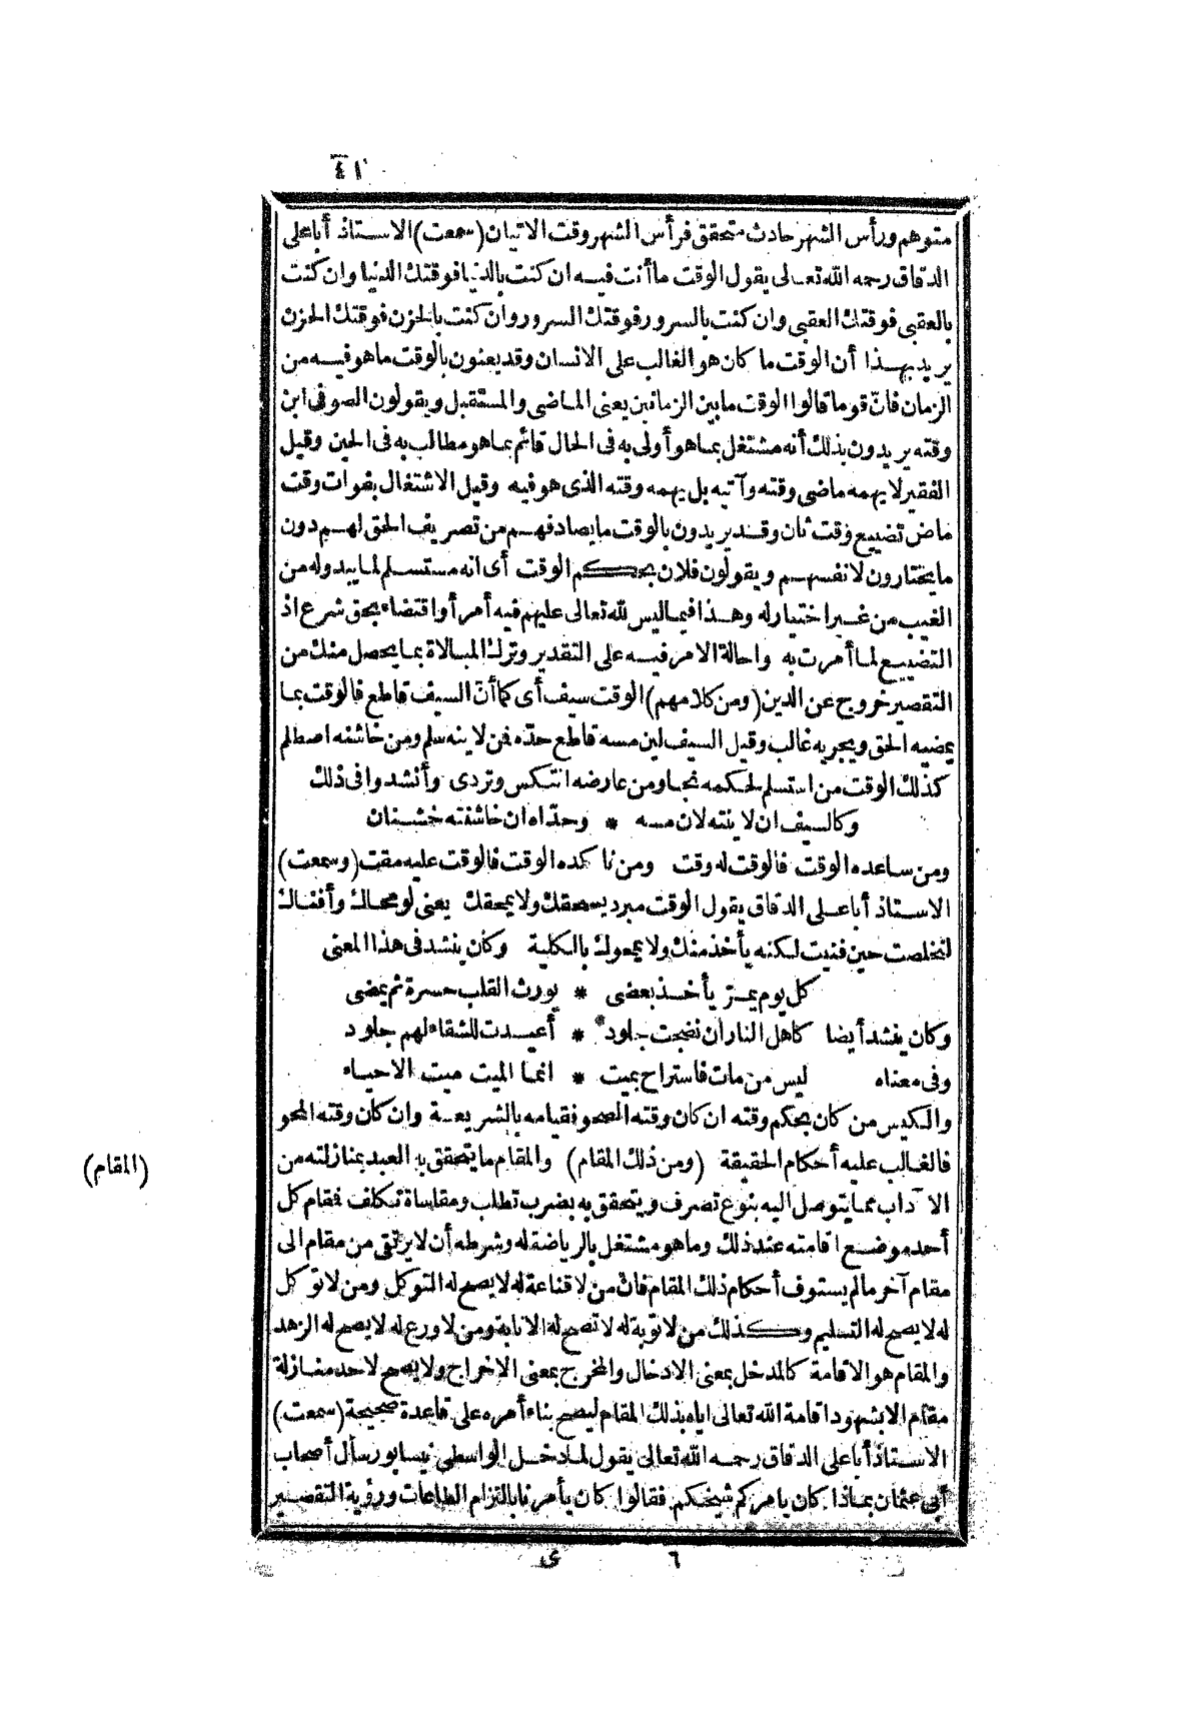 ٤١
متوهم ورأس الشهر حادث متحقق فرأس الشهر وقت الاتيان (سمعت) الاستاذ أبا على
الدقاق رحمه الله تعالى يقول الوقت ما أنت فيه ان كنت بالدنيا فوقتك الدنيا وان كنت
بالعقبى فوقتك العقبى وان كنت بالسرور فوقتك السرور وان كنت بالحزن فوقتك الحزن
يريد بهذا أن الوقت ما كان هو الغالب على الانسان وقد يعنون بالوقت ما هو فيه من
الزمان فانّ قوما قالوا الوقت ما بين الزمانين يعنى الماضى والمستقبل ويقولون الصوفى ابن
وقته يريدون بذلك أنه مشتغل بما هو أولى به فى الحال قائم بما هو مطالب به فى الحين وقيل
الفقير لا يهمه ماضى وقته وآتيه بل يهمه وقته الذى هو فيه وقيل الاشتغال بفوات وقت
ماض تضييع وقت ثان وقد يريدون بالوقت ما يصادفهم من تصريف الحق لهم دون
ما يختارون لانفسهم ويقولون فلان بحكم الوقت أى انه مستسلم لما يبدو له من
الغيب من غير اختيار له وهذا فيما ليس لله تعالى عليهم فيه أمر أو اقتضاء بحق شرع اذ
التضييع لما أمرت به واحالة الامر فيه على التقدير وترك المبالاة بما يحصل منك من
التقصير خروج عن الدين (ومن كلامهم) الوقت سيف أى كما أنّ السيف قاطع فالوقت بما
يمضيه الحق ويجريه غالب وقيل السيف لين مسه قاطع حدّه فمن لاينه سلم ومن خاشنه اصطلم
كذلك الوقت من استسلم لحكمه نجا ومن عارضه انتكس وتردى وأنشدوا فى ذلك
وكالسيف ان لاينته لان مسه * وحدّاه ان خاشنته خشنان
ومن ساعده الوقت فالوقت له وقت ومن ناكده الوقت فالوقت عليه مقت (وسمعت)
الاستاذ أبا على الدقاق يقول الوقت مبرد يسحقك ولا يمحقك يعنى لو محاك وأفناك
لتخلصت حين فنيت لكنه يأخذ منك ولا يمحوك بالكلية وكان ينشد فى هذا المعنى
كل يوم يمرّ يأخذ بعضى * يورث القلب حسرة ثم يمضى
وكان ينشد أيضا كاهل النار ان نضجت جلود * أعيدت للشقاء لهم جلود
وفى معناه ليس من مات فاستراح بميت * انما الميت ميت الاحياء
والكيس من كان بحكم وقته ان كان وقته الصحو فقيامه بالشريعة وان كان وقته المحو
فالغالب عليه أحكام الحقيقة (ومن ذلك المقام) والمقام ما يتحقق به العبد بمنازلته من
(المقام)
الآداب مما يتوصل اليه بنوع تصرف ويتحقق به بضرب تطلب ومقاساة تكلف فمقام كل
أحد موضع اقامته عند ذلك وما هو مشتغل بالرياضة له وشرطه أن لا يرتقى من مقام الى
مقام آخر ما لم يستوف أحكام ذلك المقام فان من لا قناعة له لا يصح له التوكل ومن لا توكل
له لا يصح له التسليم وكذلك من لا توبة له لا تصح له الانابة ومن لا ورع له لا يصح له الزهد
والمقام هو الاقامة كالمدخل بمعنى الادخال والمخرج بمعنى الاخراج ولا يصح لاحد منازلة
مقام الا بشهود اقامة الله تعالى اياه بذلك المقام ليصح بناء أمره على قاعدة صحيحة (سمعت)
الاستاذ أبا على الدقاق رحمه الله تعالى يقول لما دخل الواسطى نيسابور سأل أصحاب
أبى عثمان بماذا كان يأمركم شيخكم فقالوا كان يأمرنا بالتزام الطاعات ورؤية التقصير
٦ ى